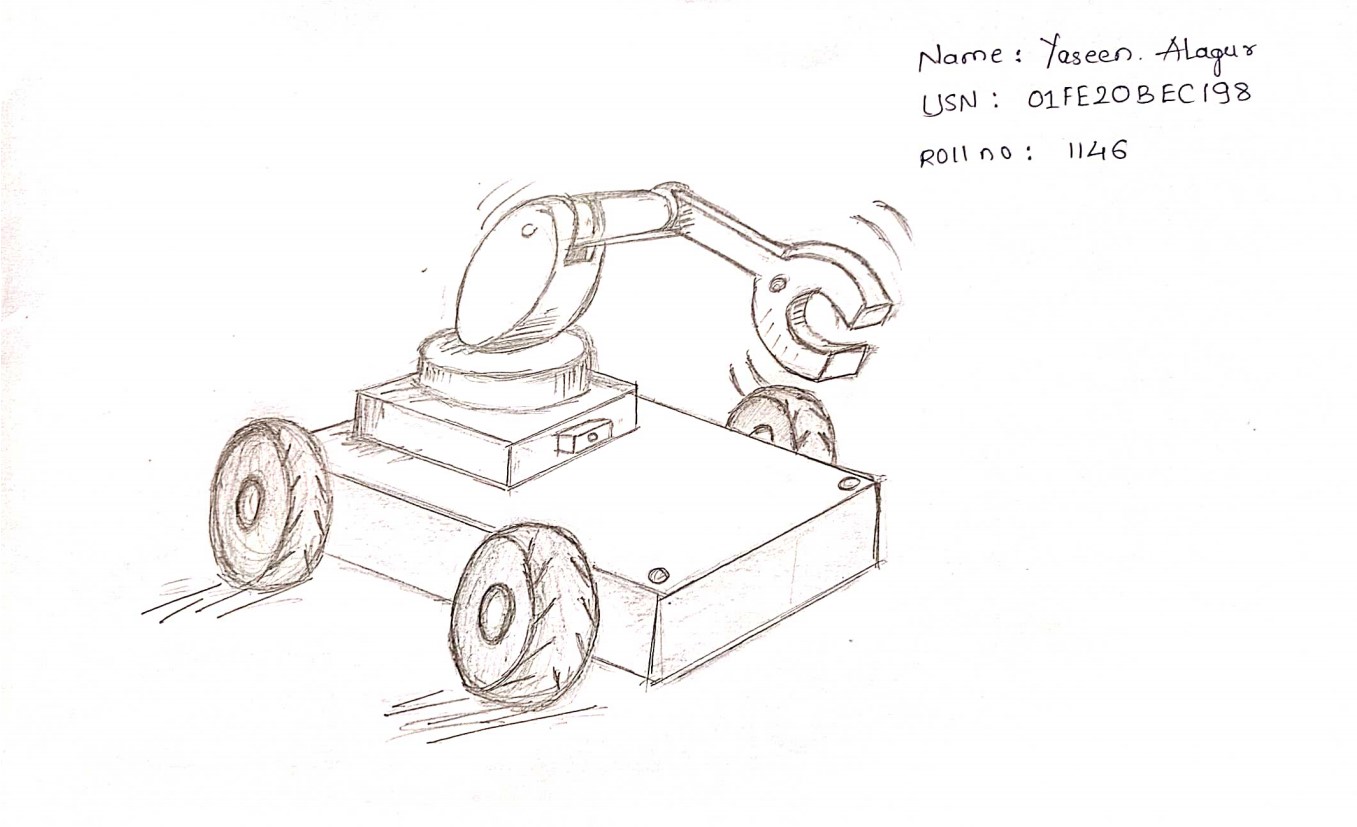 Name : Yaseen. Alagur
USN : 01FE20BEC198
Roll no : 1146